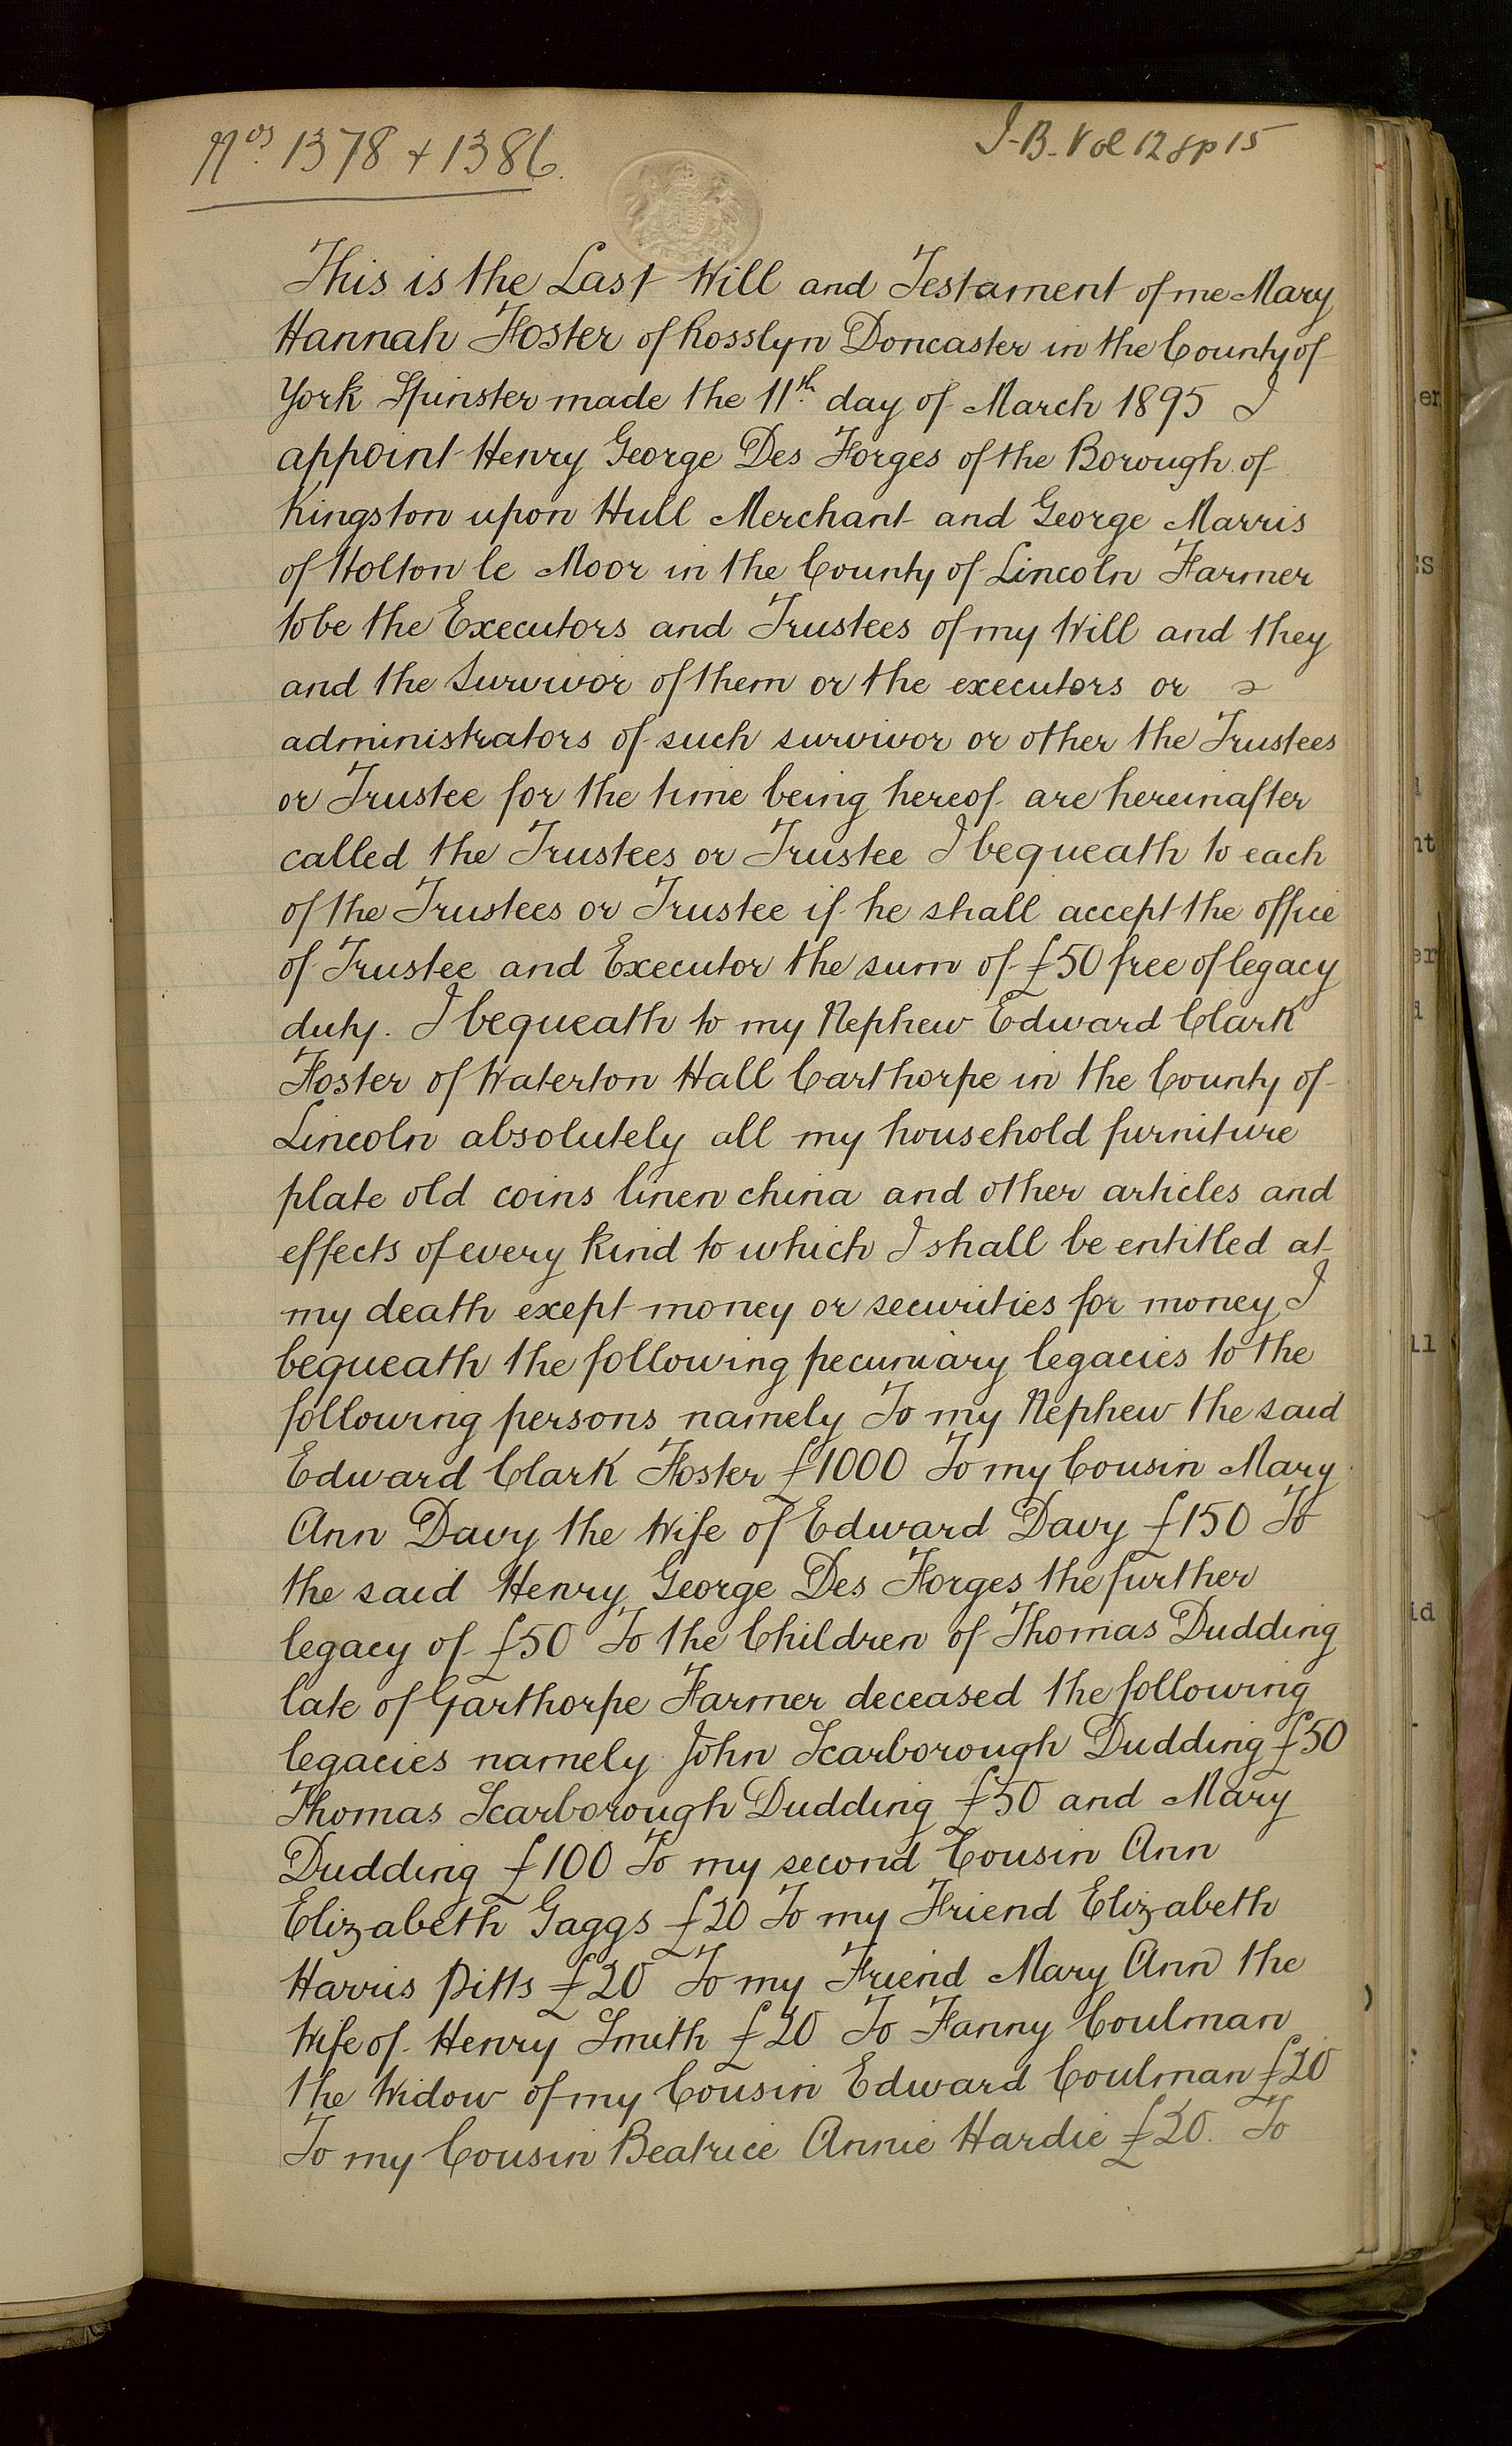 Nos. 1378 + 1386.
I-B. Vol 12 8p 15
This is the Last Will and Testament of me Mary
Hannah Foster of Rosslyn Doncaster in the County of
York Spinster made the 11th. day of March 1895 I
appoint Henry George Des Forges of the Borough of
Kingston upon Hull Merchant and George Marris
of Holton le Moor in the County of Lincoln Farmer
to be the Executors and Trustees of my Will and they
and the Survivor of them or the executors or
administrators of such survivor or other the Trustees
or Trustee for the time being hereof are hereinafter
called the Trustees or Trustee I bequeath to each
of the Trustees or Trustee if he shall accept the office
of Trustee and Executor the sum of £50 free of legacy
duty. I bequeath to my Nephew Edward Clark
Foster of Waterton Hall Carthorpe in the County of
Lincoln absolutely all my household furniture
plate old coins linen china and other articles and
effects of every kind to which I shall be entitled at
my death exept money or securities for money I
bequeath the following pecuniary legacies to the
following persons namely To my Nephew the said
Edward Clark Foster £1000 To my Cousin Mary
Ann Davy the Wife of Edward Davy £150 To
the said Henry George Des Forges the further
legacy of £50 To the Children of Thomas Dudding
late of Garthorpe Farmer deceased the following
legacies namely John Scarborough Dudding £50
Thomas Scarborough Dudding £50 and Mary
Dudding £100 To my second Cousin Ann
Elizabeth Gaggs £20 To my Friend Elizabeth
Harris Pitts £20 To my Friend Mary Ann the
Wife of Henry Smith £20 To Fanny Coulman
the Widow of my Cousin Edward Coulman £20
To my Cousin Beatrice Annie Hardie £20. To